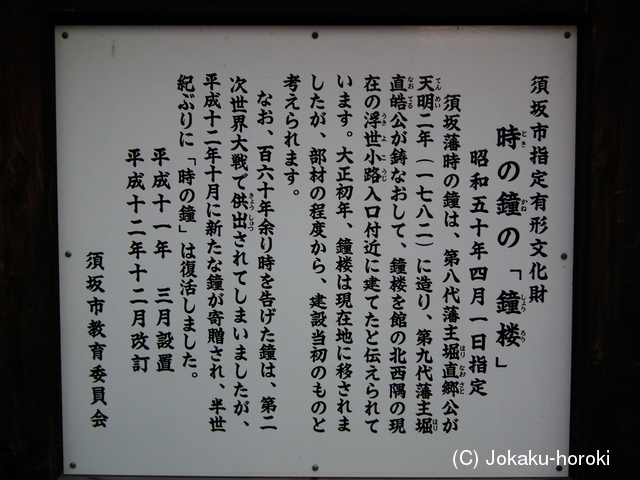 須坂市指定有形文化財
時の鐘の「鐘楼」
昭和五十年四月一日指定
須坂藩時の鐘は、第八代藩主堀直郷公が
天明二年（一七八二）に造り、第九代藩主堀
直皓公が鋳なおして、鐘楼を館の北西隅の現
在の浮世小路入口付近に建てたと伝えられて
います。大正初年、鐘楼は現在地に移されま
したが、部材の程度から、建設当初のものと
考えられます。
なお、百六十年余り時を告げた鐘は、第二
次世界大戦で供出されてしまいましたが、
平成十二年十月に新たな鐘が寄贈され、半世
紀ぶりに「時の鐘」は復活しました。
平成十一年　三月設置
平成十二年十二月改訂
須坂市教育委員会
(C) Jokaku-horoki